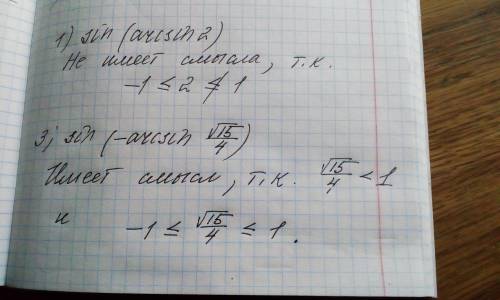 1) sin (arcsin 2)
Не имеет смысла, т.к.
-1 ≤ 2 ≰ 1
3) sin (-arcsin √15/4)
Имеет смысл, т.к. √15/4 < 1
и -1 ≤ √15/4 ≤ 1.